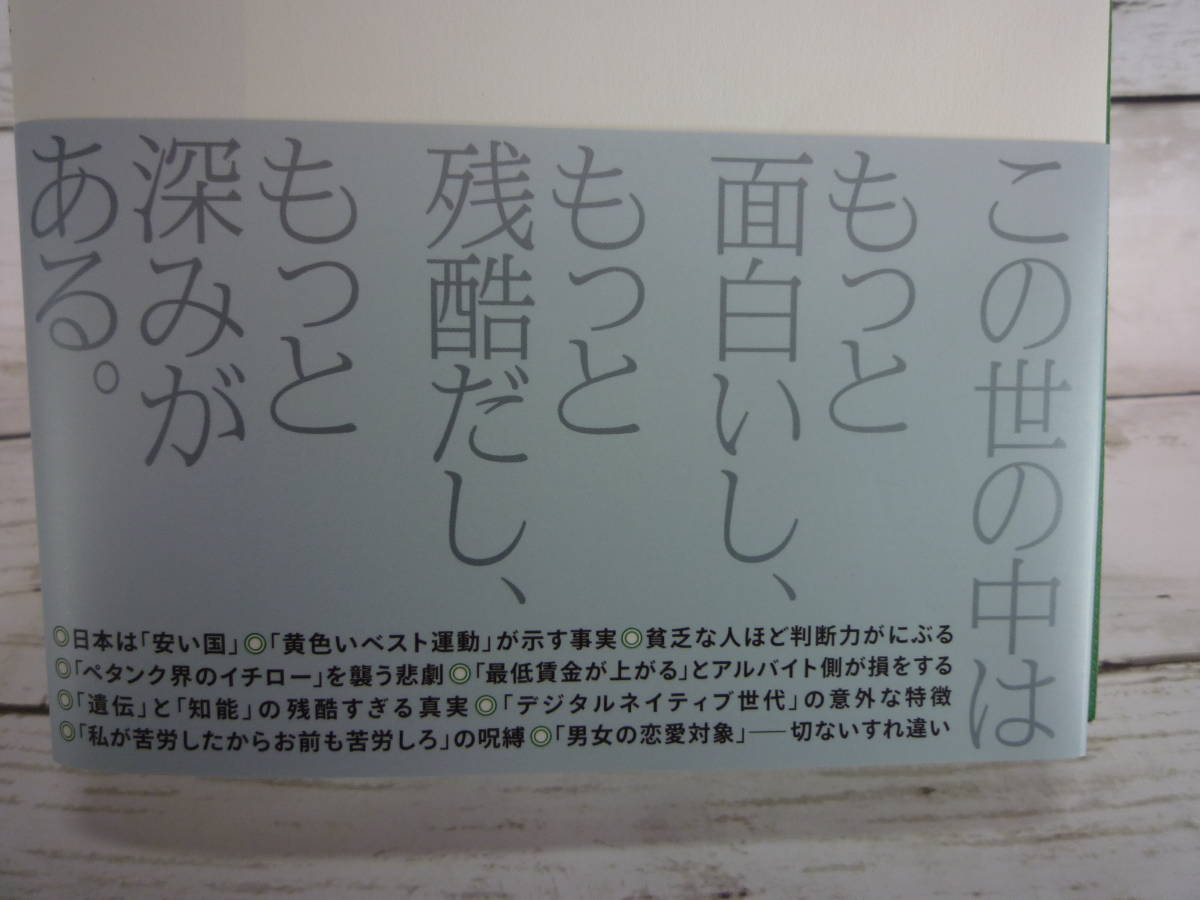 この世の中は
もっと
面白いし、
もっと
残酷だし、
もっと
深みが
ある。
◎日本は「安い国」◎「黄色いベスト運動」が示す事実◎貧乏な人ほど判断力がにぶる
◎「ペタンク界のイチロー」を襲う悲劇◎「最低賃金が上がる」とアルバイト側が損をする
◎「遺伝」と「知能」の残酷すぎる真実◎「デジタルネイティブ世代」の意外な特徴
◎「私が苦労したからお前も苦労しろ」の呪縛◎「男女の恋愛対象」――切ないすれ違い